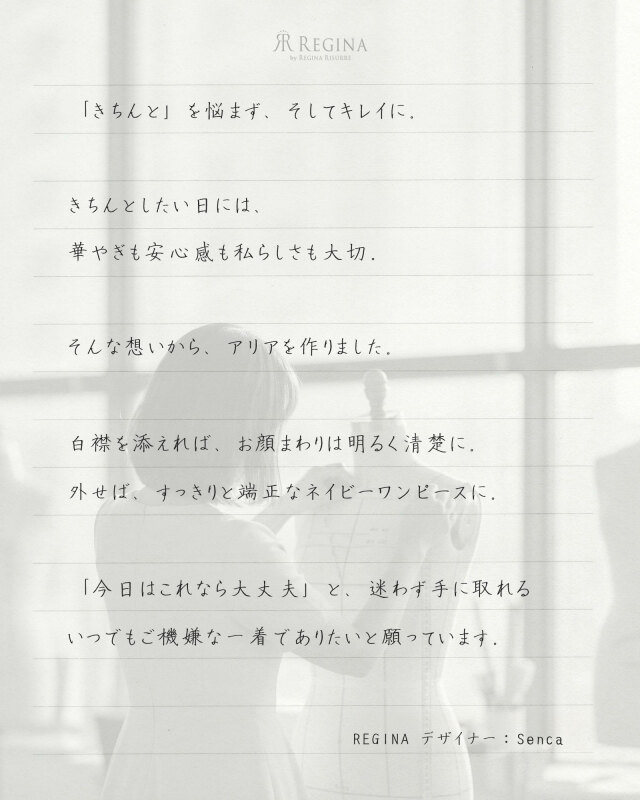 RR REGINA
by REGINA RISURRE
「きちんと」を悩まず、そしてキレイに.
きちんとしたい日には、
華やぎも安心感も私らしさも大切.
そんな想いから、アリアを作りました.
白襟を添えれば、お顔まわりは明るく清楚に.
外せば、すっきりと端正なネイビーワンピースに.
「今日はこれなら大丈夫」と、迷わず手に取れる
いつでもご機嫌な一着でありたいと願っています.
REGINA デザイナー：Senca